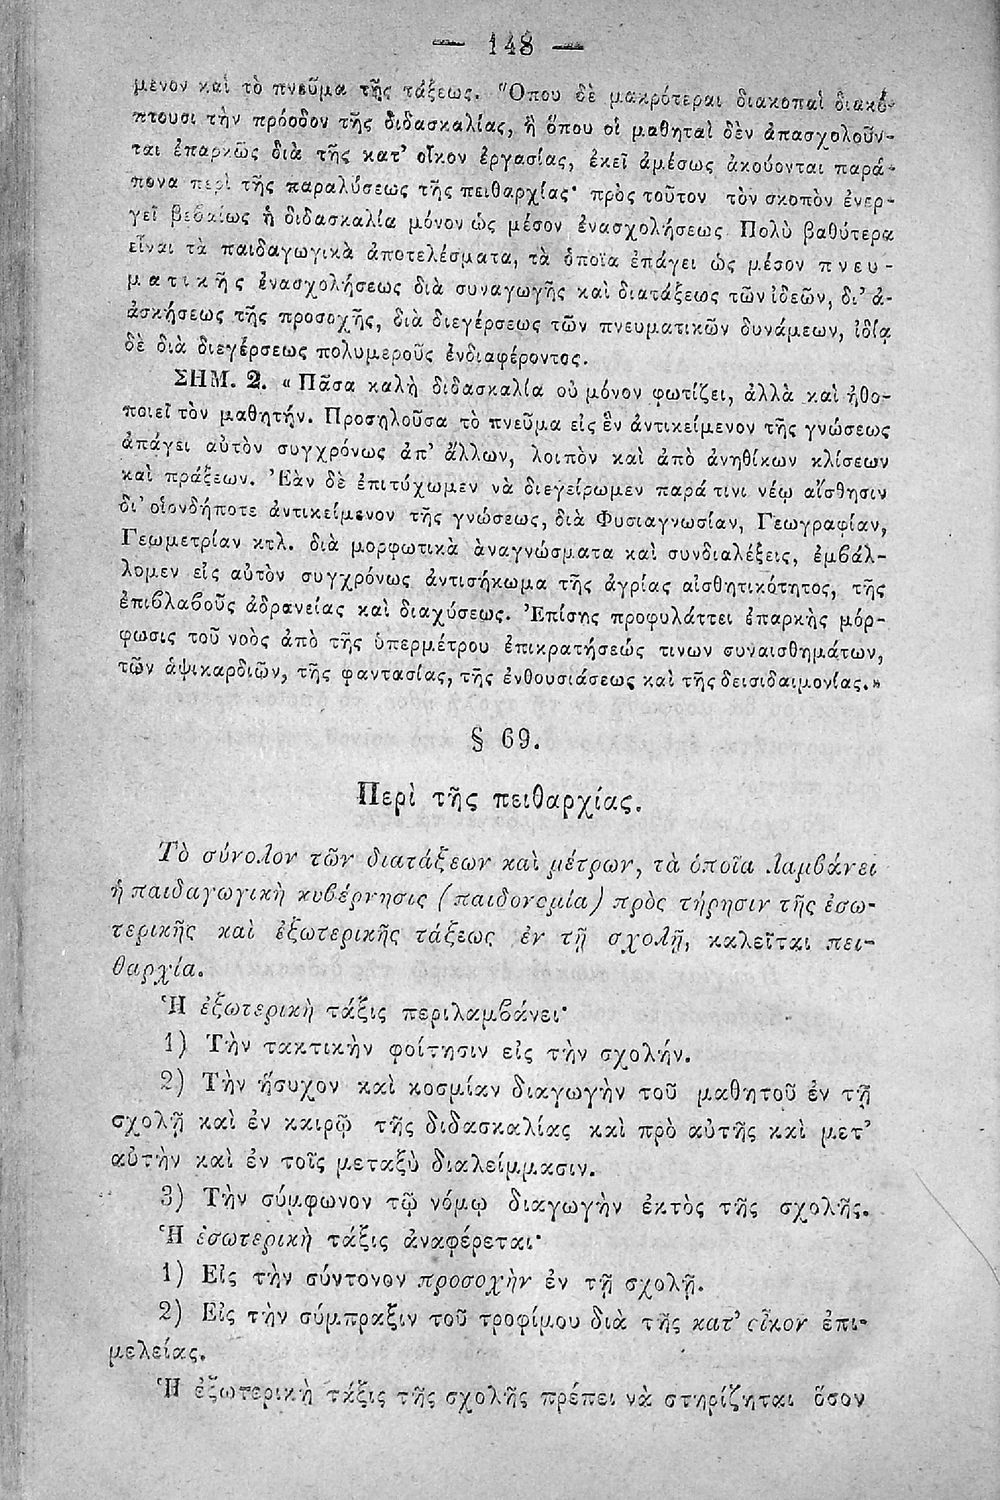 — 148 —
μενον καὶ τὸ πνεῦμα τῆς τάξεως. Ὅπου δὲ μακρότεραι διακοπαὶ διακό-
πτουσι τὴν πρόοδον τῆς διδασκαλίας, ἢ ὅπου οἱ μαθηταὶ δὲν ἀπασχολοῦν-
ται ἐπαρκῶς διὰ τῆς κατ' οἶκον ἐργασίας, ἐκεῖ ἀμέσως ἀκούονται παρά-
πονα περὶ τῆς παραλύσεως τῆς πειθαρχίας· πρὸς τοῦτον τὸν σκοπὸν ἐνερ-
γεῖ βεβαίως ἡ διδασκαλία μόνον ὡς μέσον ἐνασχολήσεως Πολὺ βαθύτερα
εἶναι τὰ παιδαγωγικὰ ἀποτελέσματα, τὰ ὁποῖα ἐπάγει ὡς μέσον πνευ-
ματικῆς ἐνασχολήσεως διὰ συναγωγῆς καὶ διατάξεως τῶν ἰδεῶν, δι' ἀ-
ἀσκήσεως τῆς προσοχῆς, διὰ διεγέρσεως τῶν πνευματικῶν δυνάμεων, ἰδίᾳ
δὲ διὰ διεγέρσεως πολυμεροῦς ἐνδιαφέροντος.
ΣΗΜ. 2. «Πᾶσα καλὴ διδασκαλία οὐ μόνον φωτίζει, ἀλλὰ καὶ ἠθο-
ποιεῖ τὸν μαθητήν. Προσηλοῦσα τὸ πνεῦμα εἰς ἓν ἀντικείμενον τῆς γνώσεως
ἀπάγει αὐτὸν συγχρόνως ἀπ' ἄλλων, λοιπὸν καὶ ἀπὸ ἀνηθίκων κλίσεων
καὶ πράξεων. Ἐὰν δὲ ἐπιτύχωμεν νὰ διεγείρωμεν παρά τινι νέῳ αἴσθησιν
δι' οἱονδήποτε ἀντικείμενον τῆς γνώσεως, διὰ Φυσιαγνωσίαν, Γεωγραφίαν,
Γεωμετρίαν κτλ. διὰ μορφωτικὰ ἀναγνώσματα καὶ συνδιαλέξεις, ἐμβάλ-
λομεν εἰς αὐτὸν συγχρόνως ἀντισήκωμα τῆς ἀγρίας αἰσθητικότητος, τῆς
ἐπιβλαβοῦς ἀδρανείας καὶ διαχύσεως. Ἐπίσης προφυλάττει ἐπαρκὴς μόρ-
φωσις τοῦ νοὸς ἀπὸ τῆς ὑπερμέτρου ἐπικρατήσεώς τινων συναισθημάτων,
τῶν ἁψικαρδιῶν, τῆς φαντασίας, τῆς ἐνθουσιάσεως καὶ τῆς δεισιδαιμονίας.»
§ 69.
Περὶ τῆς πειθαρχίας.
Τὸ σύνολον τῶν διατάξεων καὶ μέτρων, τὰ ὁποῖα λαμβάνει
ἡ παιδαγωγικὴ κυβέρνησις (παιδονομία) πρὸς τήρησιν τῆς ἐσω-
τερικῆς καὶ ἐξωτερικῆς τάξεως ἐν τῇ σχολῇ, καλεῖται πει-
θαρχία.
Ἡ ἐξωτερικὴ τάξις περιλαμβάνει·
1) Τὴν τακτικὴν φοίτησιν εἰς τὴν σχολήν.
2) Τὴν ἥσυχον καὶ κοσμίαν διαγωγὴν τοῦ μαθητοῦ ἐν τῇ
σχολῇ καὶ ἐν καιρῷ τῆς διδασκαλίας καὶ πρὸ αὐτῆς καὶ μετ'
αὐτὴν καὶ ἐν τοῖς μεταξὺ διαλείμμασιν.
3) Τὴν σύμφωνον τῷ νόμῳ διαγωγὴν ἐκτὸς τῆς σχολῆς.
Ἡ ἐσωτερικὴ τάξις ἀναφέρεται·
1) Εἰς τὴν σύντονον προσοχὴν ἐν τῇ σχολῇ.
2) Εἰς τὴν σύμπραξιν τοῦ τροφίμου διὰ τῆς κατ' οἶκον ἐπι-
μελείας.
Ἡ ἐξωτερικὴ τάξις τῆς σχολῆς πρέπει νὰ στηρίζηται ὅσον